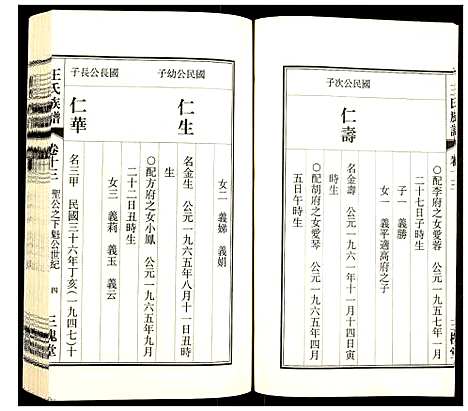 王氏族譜
卷十三
三槐堂
○配李府之女愛蓉 公元一九五七年一月
二十七日子時生
子一 義勝
女一 義平適高府之子
國民公次子
仁壽
名金壽 公元一九六一年十一月十四日寅
時生
○配胡府之女愛琴 公元一九六五年四月
五日午時生
女二 義娣 義娟
國民公幼子
仁生
名金生 公元一九六五年八月十一日丑時
生
○配方府之女小鳳 公元一九六五年九月
二十二日丑時生
女三 義莉 義玉 義云
國長公長子
仁華
名三甲 民國三十六年丁亥(一九四七)十
王氏族譜
卷十三
聖公之下魁公世紀
四
三槐堂